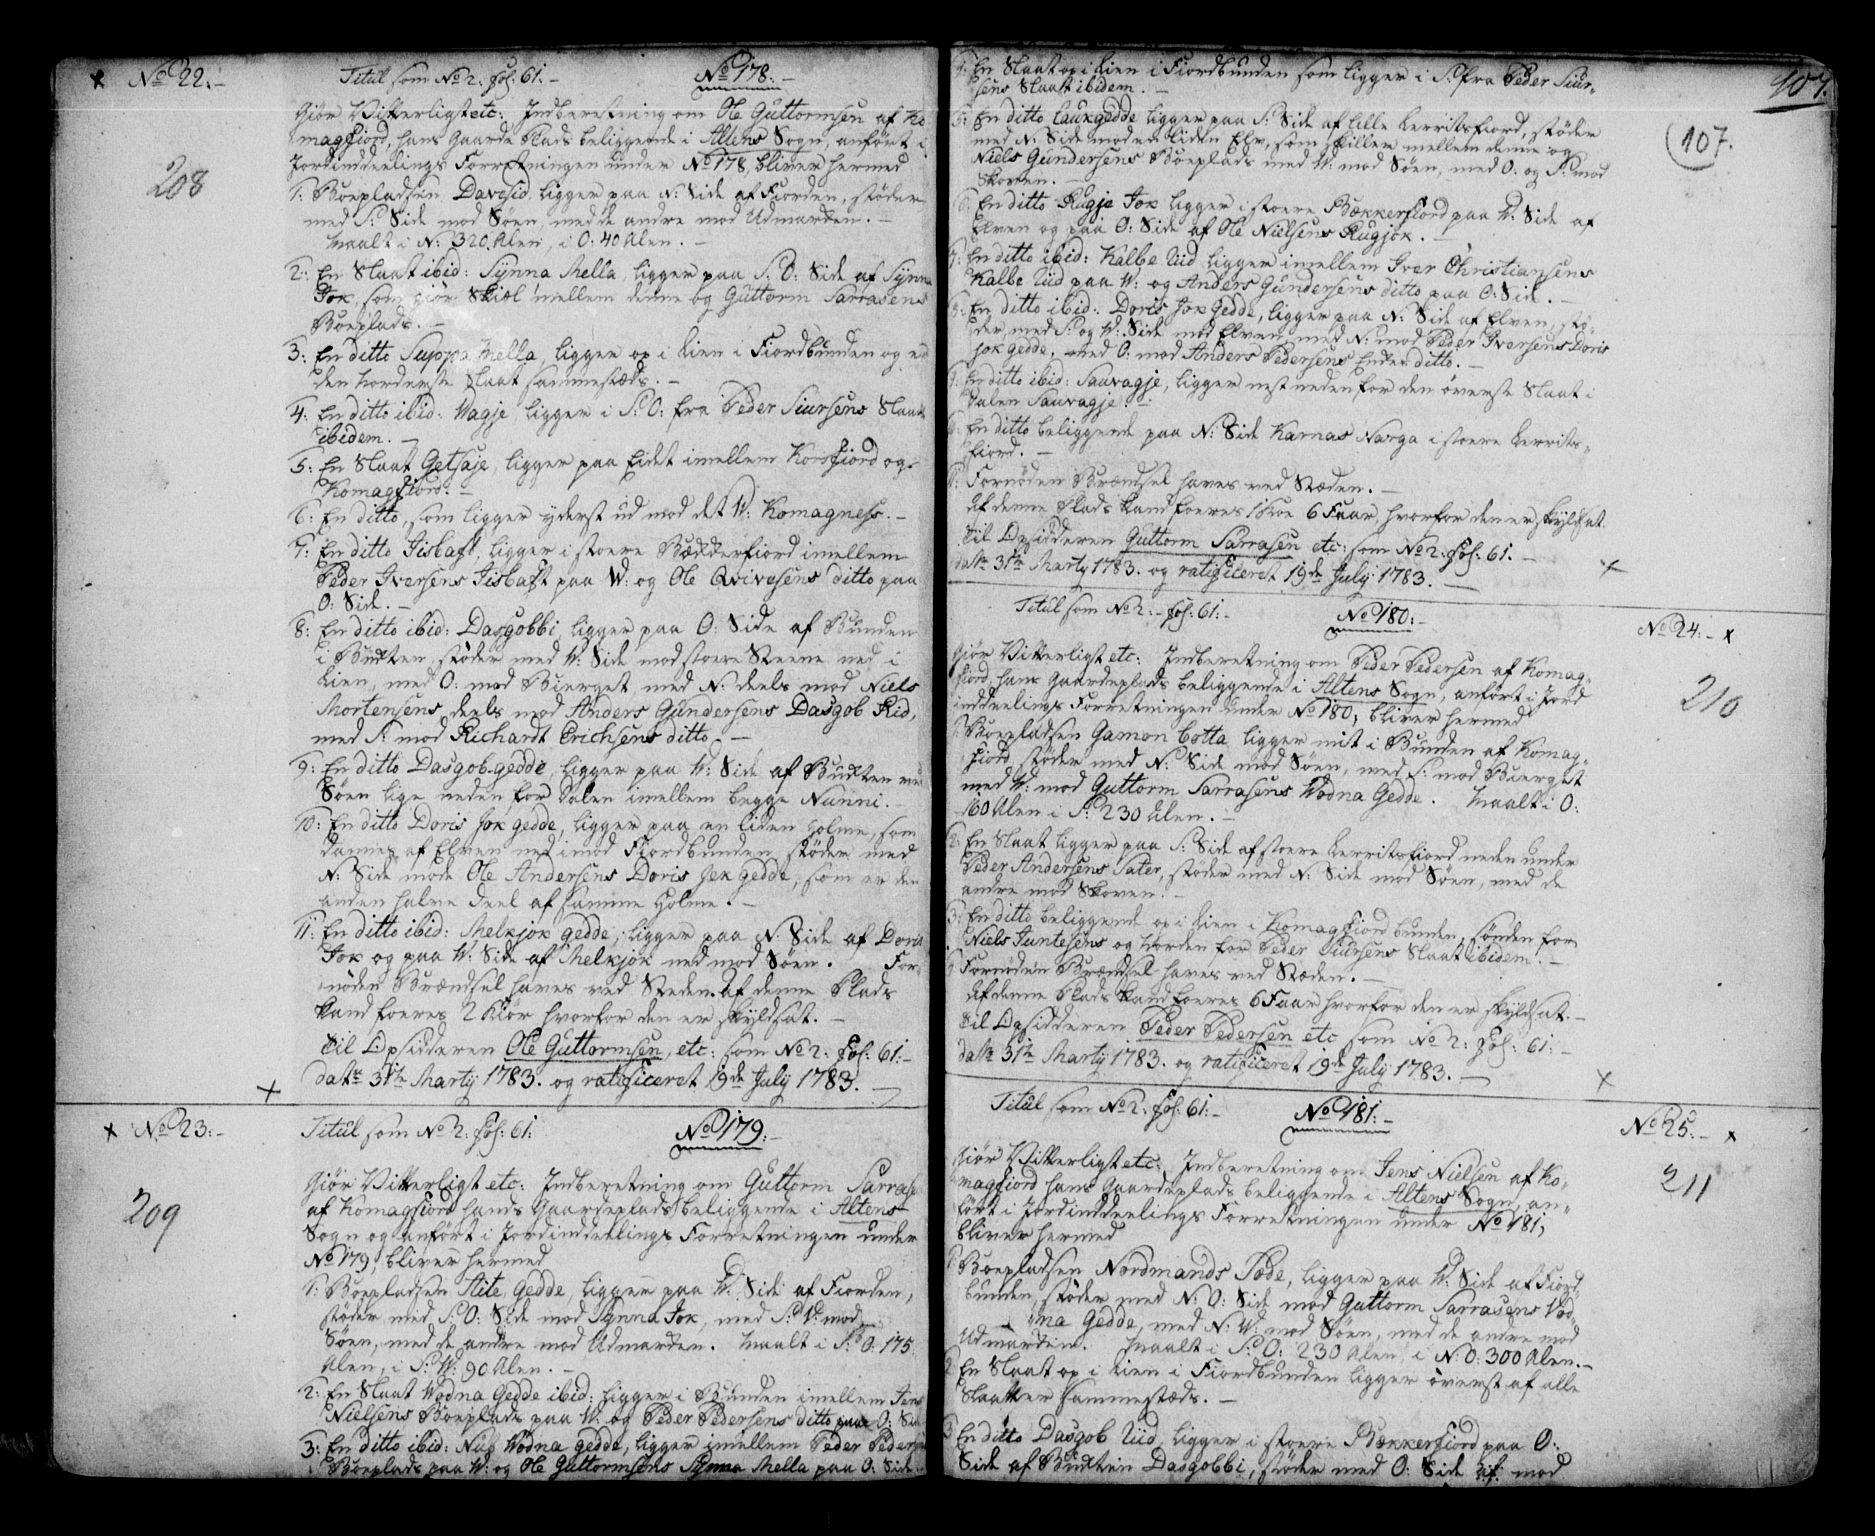 x No 22:-
Titul som No 2: Fol: 61.-
No 178:-
208
Giör Vitterligt etc: Indberetning om Ole Guttormsen af Ko
magfiord, hans Gaarde Plads beliggende i Altens Sogn, anfört i
Jordinddeelings Forretningen under No 178, bliver hermed
1: Boepladsen Davisid, ligger paa N: Side af Fiorden, stöder
med S: Side mod Söen, med de andre mod Udmarken.-
Maalt i N: 320 Alen, i O: 40 Alen.-
2: En Slaat ibid: Synna Mella, ligger paa S: O: Side af Synna
Jok, som giör Skiæl mellem denne og Guttorm Sarrasens
Boeplads.-
3: En ditto Suppa Mella, ligger op i Lien i Fiordbunden og er
den Norderste Slaat sammestæds.-
4: En ditto ibid: Vagje, ligger i S: O: fra Peder Siursens Slaat
ibidem.-
5: En Slaat Getsaje, ligger paa Eidet imellem Korsfiord og
Komagfiord.-
6: En ditto, som ligger yderst ud mod det W: Komagness.-
7: En ditto Jisbast, ligger i stoere Bekkerfiord imellem
Peder Iversens Jisbast paa W: og Ole Qvivesens ditto paa
O: Side.-
8: En ditto ibid: Dasgobbi, ligger paa O: Side af Bunden
i Bugten, stöder med W: Side mod stoere Steene ned i
Lien, med O: mod Bierget, med N: deels mod Niels
Mortensens, deels mod Anders Gundersens Dasgob Rid,
med S: mod Richardt Erichsens ditto.-
9: En ditto Dasgob-gedde, ligger paa W: Side af Bugten ved
Söen lige neden for Dalen imellem begge Nunni.-
10: En ditto Doris Jok gedde, ligger paa en liden Holme, som
dannes af Elven ned imod Fiordbunden, stöder med
N: Side mode Ole Andersens Doris Jok gedde, som er den
anden halve Deel af samme Holme.-
11: En ditto ibid: Melkjok gedde, ligger paa N: Side af Doris
Jok og paa W: Side af Melkjok ned mod Söen. For
nöden Brændsel haves ved Steden. Af denne Plads
kand foeres 2 Kiör hvorfor den er skyldsat.-
Til Opsidderen Ole Guttormsen, etc: som No 2: Fol: 61:-
dato 31te Marty 1783. og ratificeret 19de July 1783.-
x
x No 23:-
Titul som No 2: Fol: 61:
No 179:-
209
Giör Vitterligt etc: Indberetning om Guttorm Sarrasen
af Komagfiord hands Gaardeplads beliggende i Altens
Sogn og anfört i Jordinddeelings Forretningen under
No 179, bliver hermed
1: Boepladsen Aite, Gedde, ligger paa W: Side af Fiorden,
stöder med S: O: Side mod Synna Jok, med S: W: mod
Söen, med de andre mod Udmarken. Maalt i S: O: 175
Alen, i S: W: 90 Alen.-
2: En Slaat Wodna Gedde ibid: ligger i Bunden imellem Jens
Nielsens Boeplads paa W: og Peder Pedersens ditto paa O: Side
3: En ditto ibid: Nuf Wodna gedde, ligger imellem Peder Pedersens
Boeplads paa W: og Ole Guttormsens Synna Mella paa O: Side.
107.
107.
4: En Slaat op i Lien i Fiordbunden som ligger i S: fra Peder Siur-
sens Slaat ibidem.-
5: En ditto Laukgedde ligger paa S: Side af Lille Lerritsfiord, stöder
med N: Side mod en liden Elv, som skiller mellem denne og
Niels Gundersens Boeplads med W: mod Söen, med O: og S: mod
Skoven.-
6: En ditto Rugje Jok ligger i stoere Bekkerfiord paa W: Side af
Elven og paa O: Side af Ole Nielsens Rugjok.-
7: En ditto ibid: Kalbe Uid ligger imellem Iver Christiansens
Kalbe Uid paa W: og Anders Gundersens ditto paa O: Side.-
8: En ditto ibid: Doris Jok Gedde, ligger paa N: Side af Elven, stö-
der med S: og W: Side mod Elven, med N: mod Peder Iversens Doris
Jok gedde, med O: mod Anders Pedersens Ender ditto.-
9: En ditto ibid: Sauvagje, ligger nest neden for den överste Slaat i
Dalen Sauvagje.-
10: En ditto beliggende paa N: Side Karnas Narga i stoere Lerrits-
fiord.-
11: Fornöden Brændsel haves ved Stæden.-
Af denne Plads kand foeres 1 Koe 6 Faar hvorfor den er skyldsat.
Til Opsidderen Guttorm Sarrasen etc: som No 2: Fol: 61.-
dato 31te Marty 1783. og ratificeret 19de July 1783.-
x
Titul som No 2:- Fol: 61:-
No 180:-
No 24:- x
210
Giör Vitterligt etc: Indberetning om Peder Pedersen af Komag-
fiord, hans Gaardeplads beliggende i Altens Sogn, anfört i Jord
inddeelings Forretningen under No 180, bliver hermed
1: Boepladsen Gamon Cotta, ligger mit i Bunden af Komag-
fiord, stöder med N: Side mod Söen, med S: mod Bierget
med W: mod Guttorm Sarrasens Wodna Gedde. Maalt i O:
160 Alen i S: 230 Alen.-
2: En Slaat ligger paa S: Side af stoere Lerritsfiord neden under
Peder Andersens Sater, stöder med N: Side mod Söen, med de
andre mod Skoven.-
3: En ditto beliggende op i Lien i Komagfiord bunden, sönden for
Niels Juntesens og Norden for Peder Siursens Slaat ibidem.-
4: Fornöden Brændsel haves ved Stæden.-
Af denne Plads kand foeres 6 Faar hvorfor den er skyldsat.-
Til Opsidderen Peder Pedersen etc som No 2: Fol: 61:-
dato 31te Marty 1783. og ratificeret 19de July 1783.-
x
Titul som No 2: Fol: 61:-
No 181:-
No 25:- x
211
Giör Vitterligt etc: Indberetning om Jens Nielsen af Ko-
magfiord hans Gaardeplads beliggende i Altens Sogn, an-
fört i Jordinddeelings Forretningen under No 181,
bliver hermed
1: Boepladsen Nordmands Töde, ligger paa W: Side af Fiord-
bunden, stöder med N: O: Side mod Guttorm Sarrasens Vod-
na Gedde, med N: W: mod Söen, med de andre mod
Udmarken. Maalt i S: O: 230 Alen, i N: O: 300 Alen.-
2: En Slaat op i Lien i Fiordbunden ligger överst af alle
Slaatter sammestæds.-
3: En ditto Dasgob Uid, ligger i stoere Bekkerfiord paa O:
Side af Bugten Dasgobbi, stöder med O: Side af mod